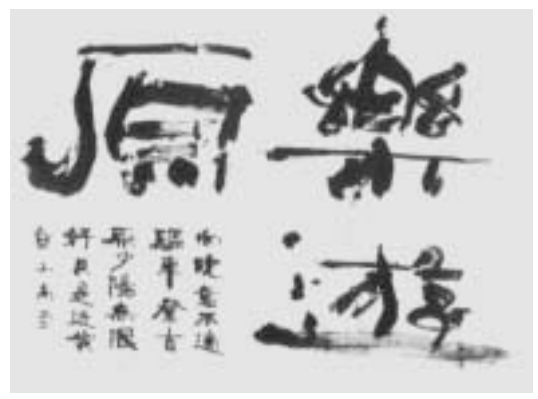 樂遊
原
向晚意不適
驅車登古
原夕陽無限
好只是近黃
昏